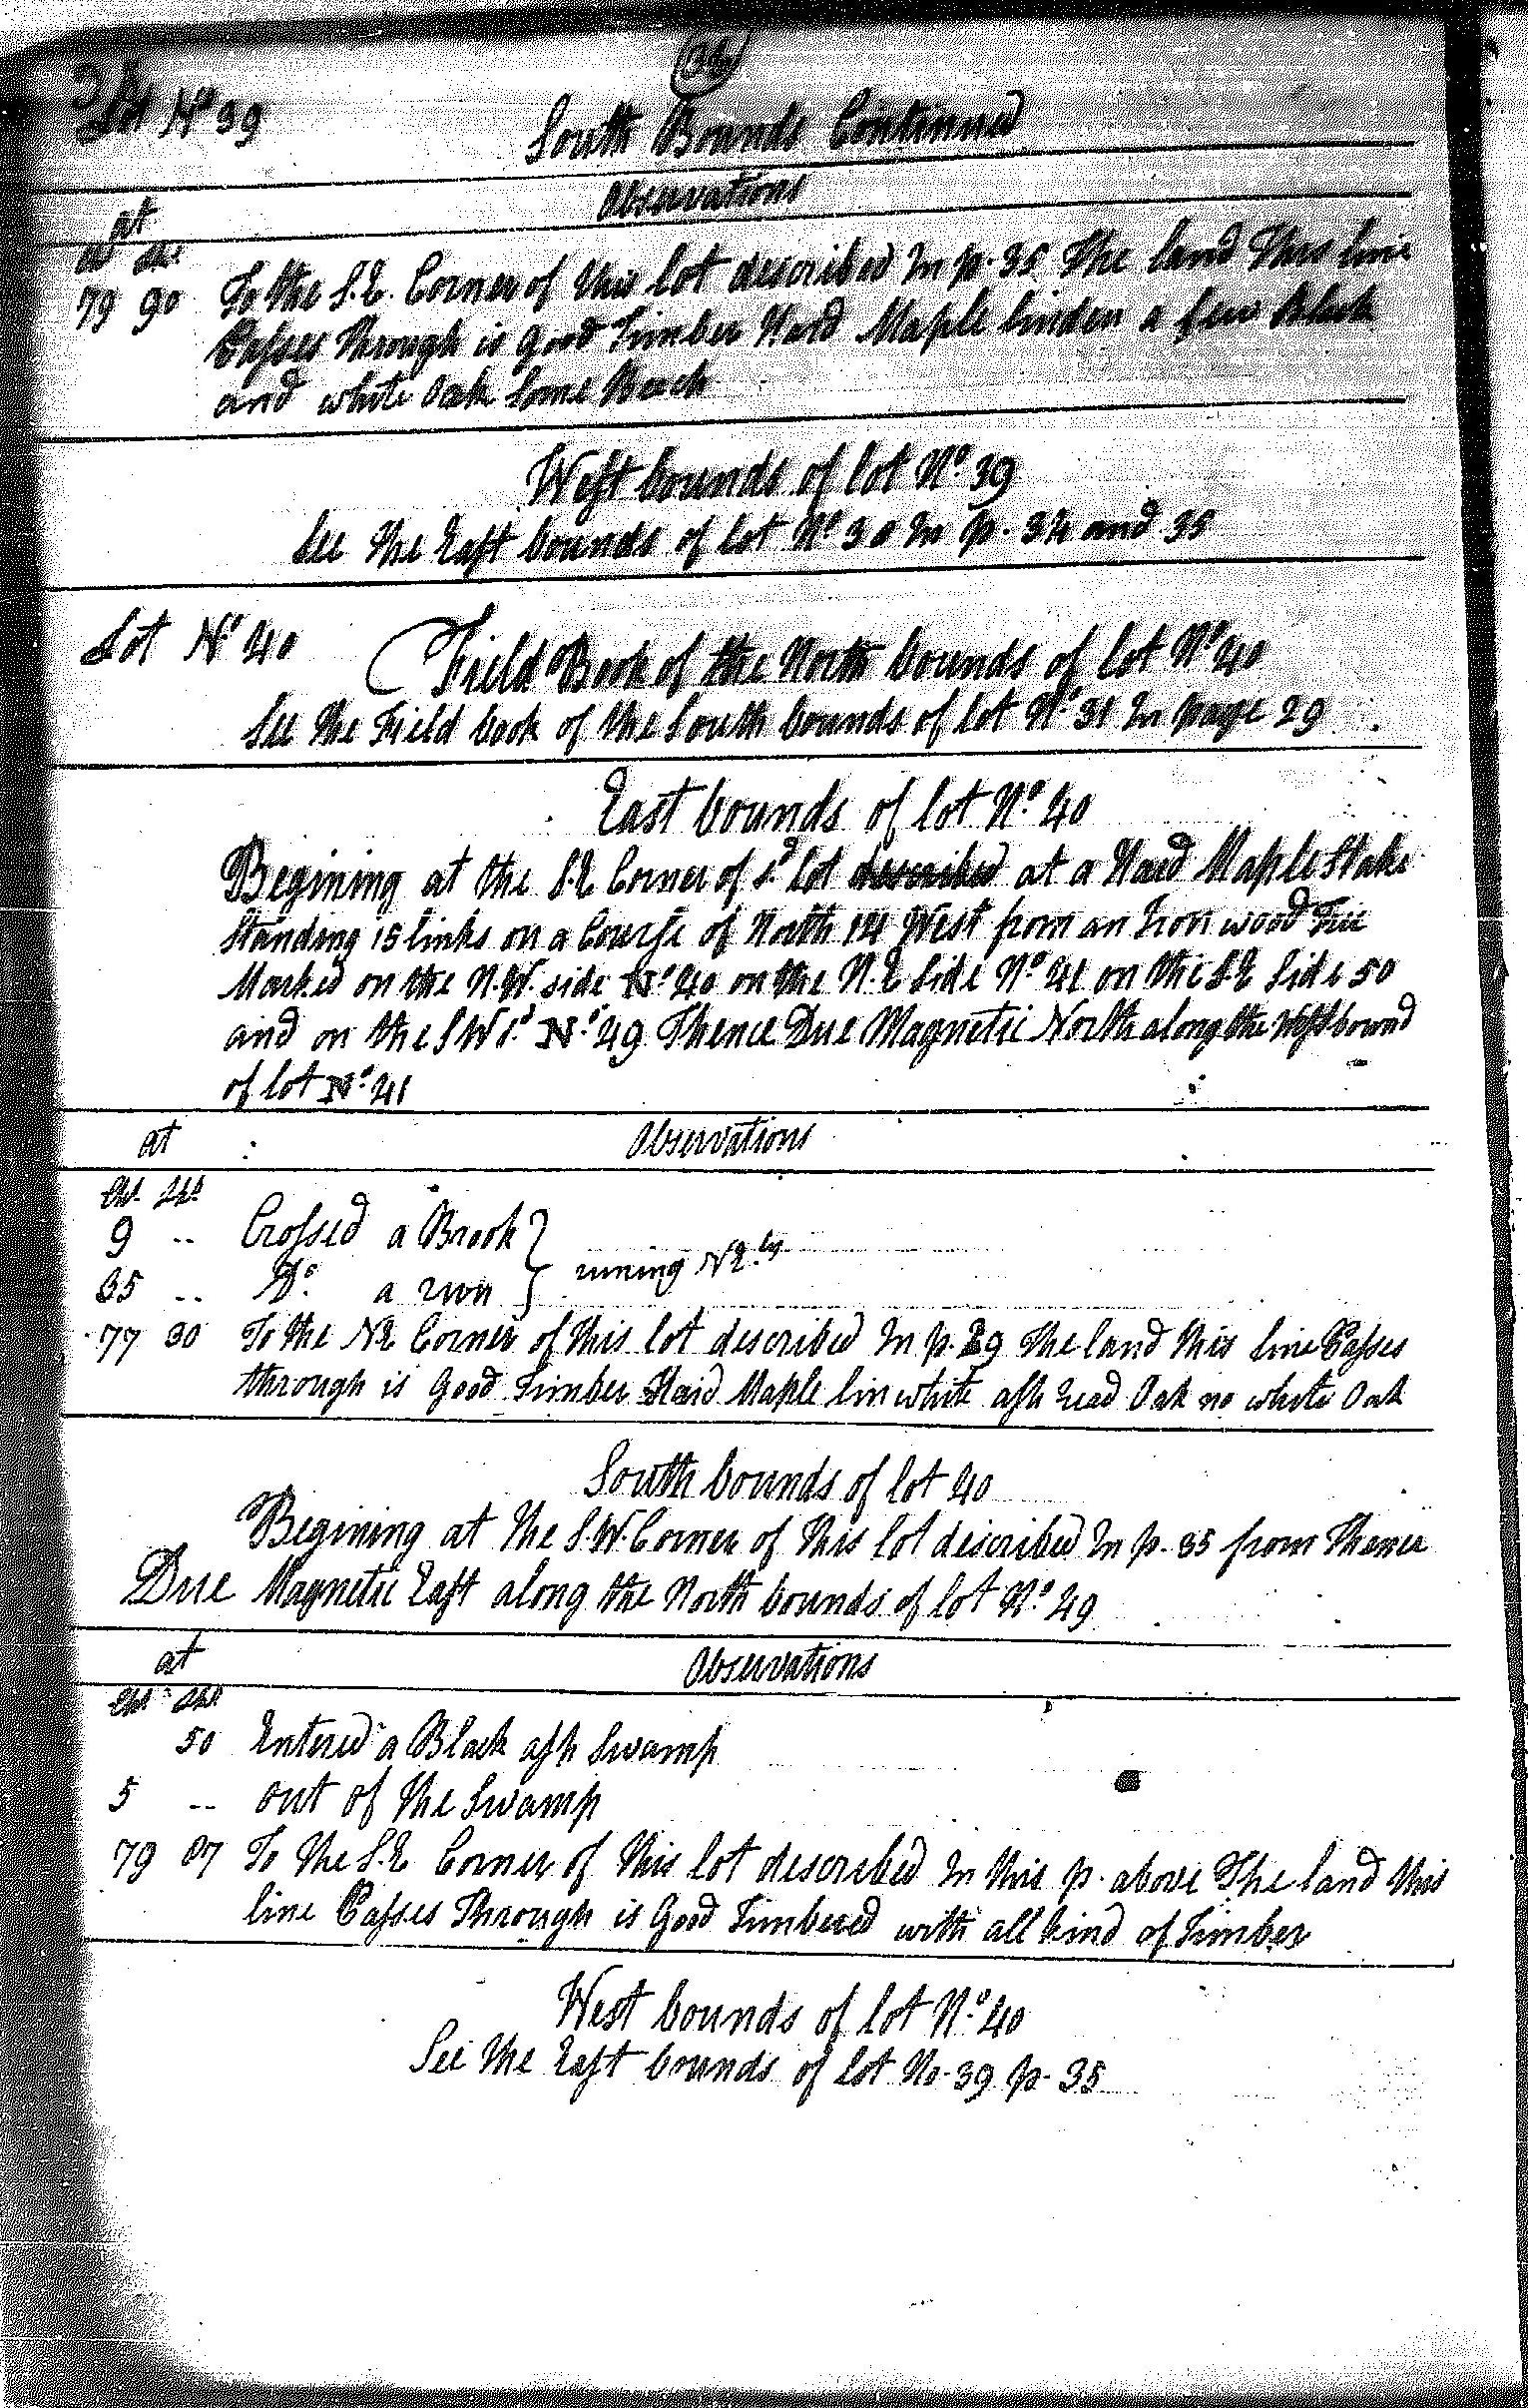 Lot No 39
South Bounds Continued
at Observations
Ch Lks
79 90 To the S.E. Corner of this lot described In p. 35 The land This line
Passes Through is good Timber Hard Maple linden a few Black
and white Oak Some Beech
West bounds of lot No. 39
See the East bounds of lot No. 30 In p. 34 and 35
Lot No 40 Field Book of the North bounds of lot No 40
See the Field book of the South bounds of lot No. 31 In page 29
East bounds of lot No. 40
Begining at the S.E Corner of sd. lot at a Hard Maple Stake
Standing 15 links on a Course of North 14 West from an Iron wood Tree
Marked on the N.W. side No. 40 on the N.E Side No. 41 on the S.E Side 50
and on the SW sd. No. 49 Thence Due Magnetic North along the West bound
of lot No. 41
at Observations
Ch. Lks.
9 .. Crossed a Brook } runing NE.ly
35 .. Do. a run
77 30 To the NE Corner of this lot described In p. 29 The land this line Passes
through is Good Timber Hard Maple lin white ash read Oak no white Oak
South bounds of lot 40
Begining at the S.W. Corner of this lot described In p. 35 from Thence
Due Magnetic East along the North bounds of lot No. 49
at Observations
Ch. Lks
50 Entered a Black ash Swamp
5 .. out of the Swamp
79 07 To the S.E Corner of this lot described In this p. above The land this
line Passes Through is Good Timbered with all kind of Timber
West bounds of lot No. 40
See the East bounds of lot No. 39 p. 35